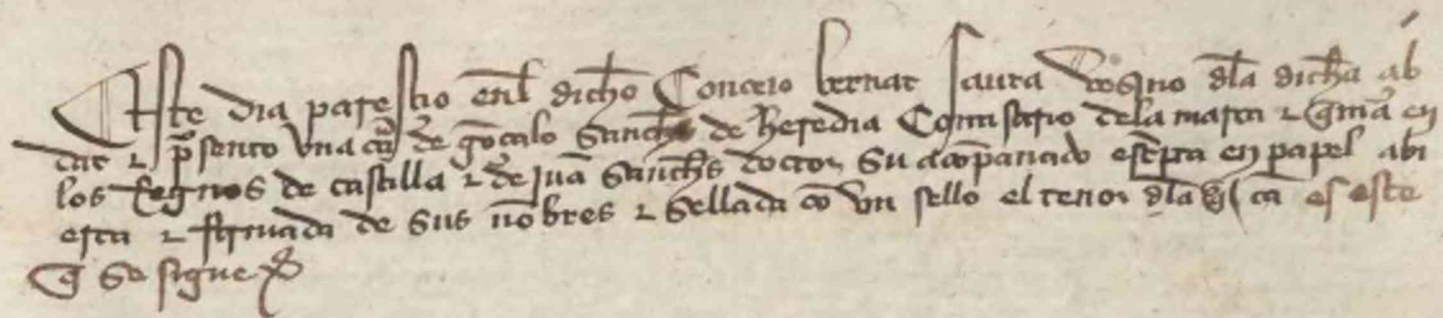 Este dia paresçio enl dicho Conçeio bernat saura vesino dla dicha çib
dat ⁊ presento vna cã de gõçalo Sanches de heredia Comisario dela marca ⁊ qma en
los Regnos de castilla ⁊ de juã Sanches doctor su acõpañado escpta en papel abi
erta ⁊ firmada de sus nõbres ⁊ Sellada cõ vn sello el tenor dla ql cã es este
q se sigue